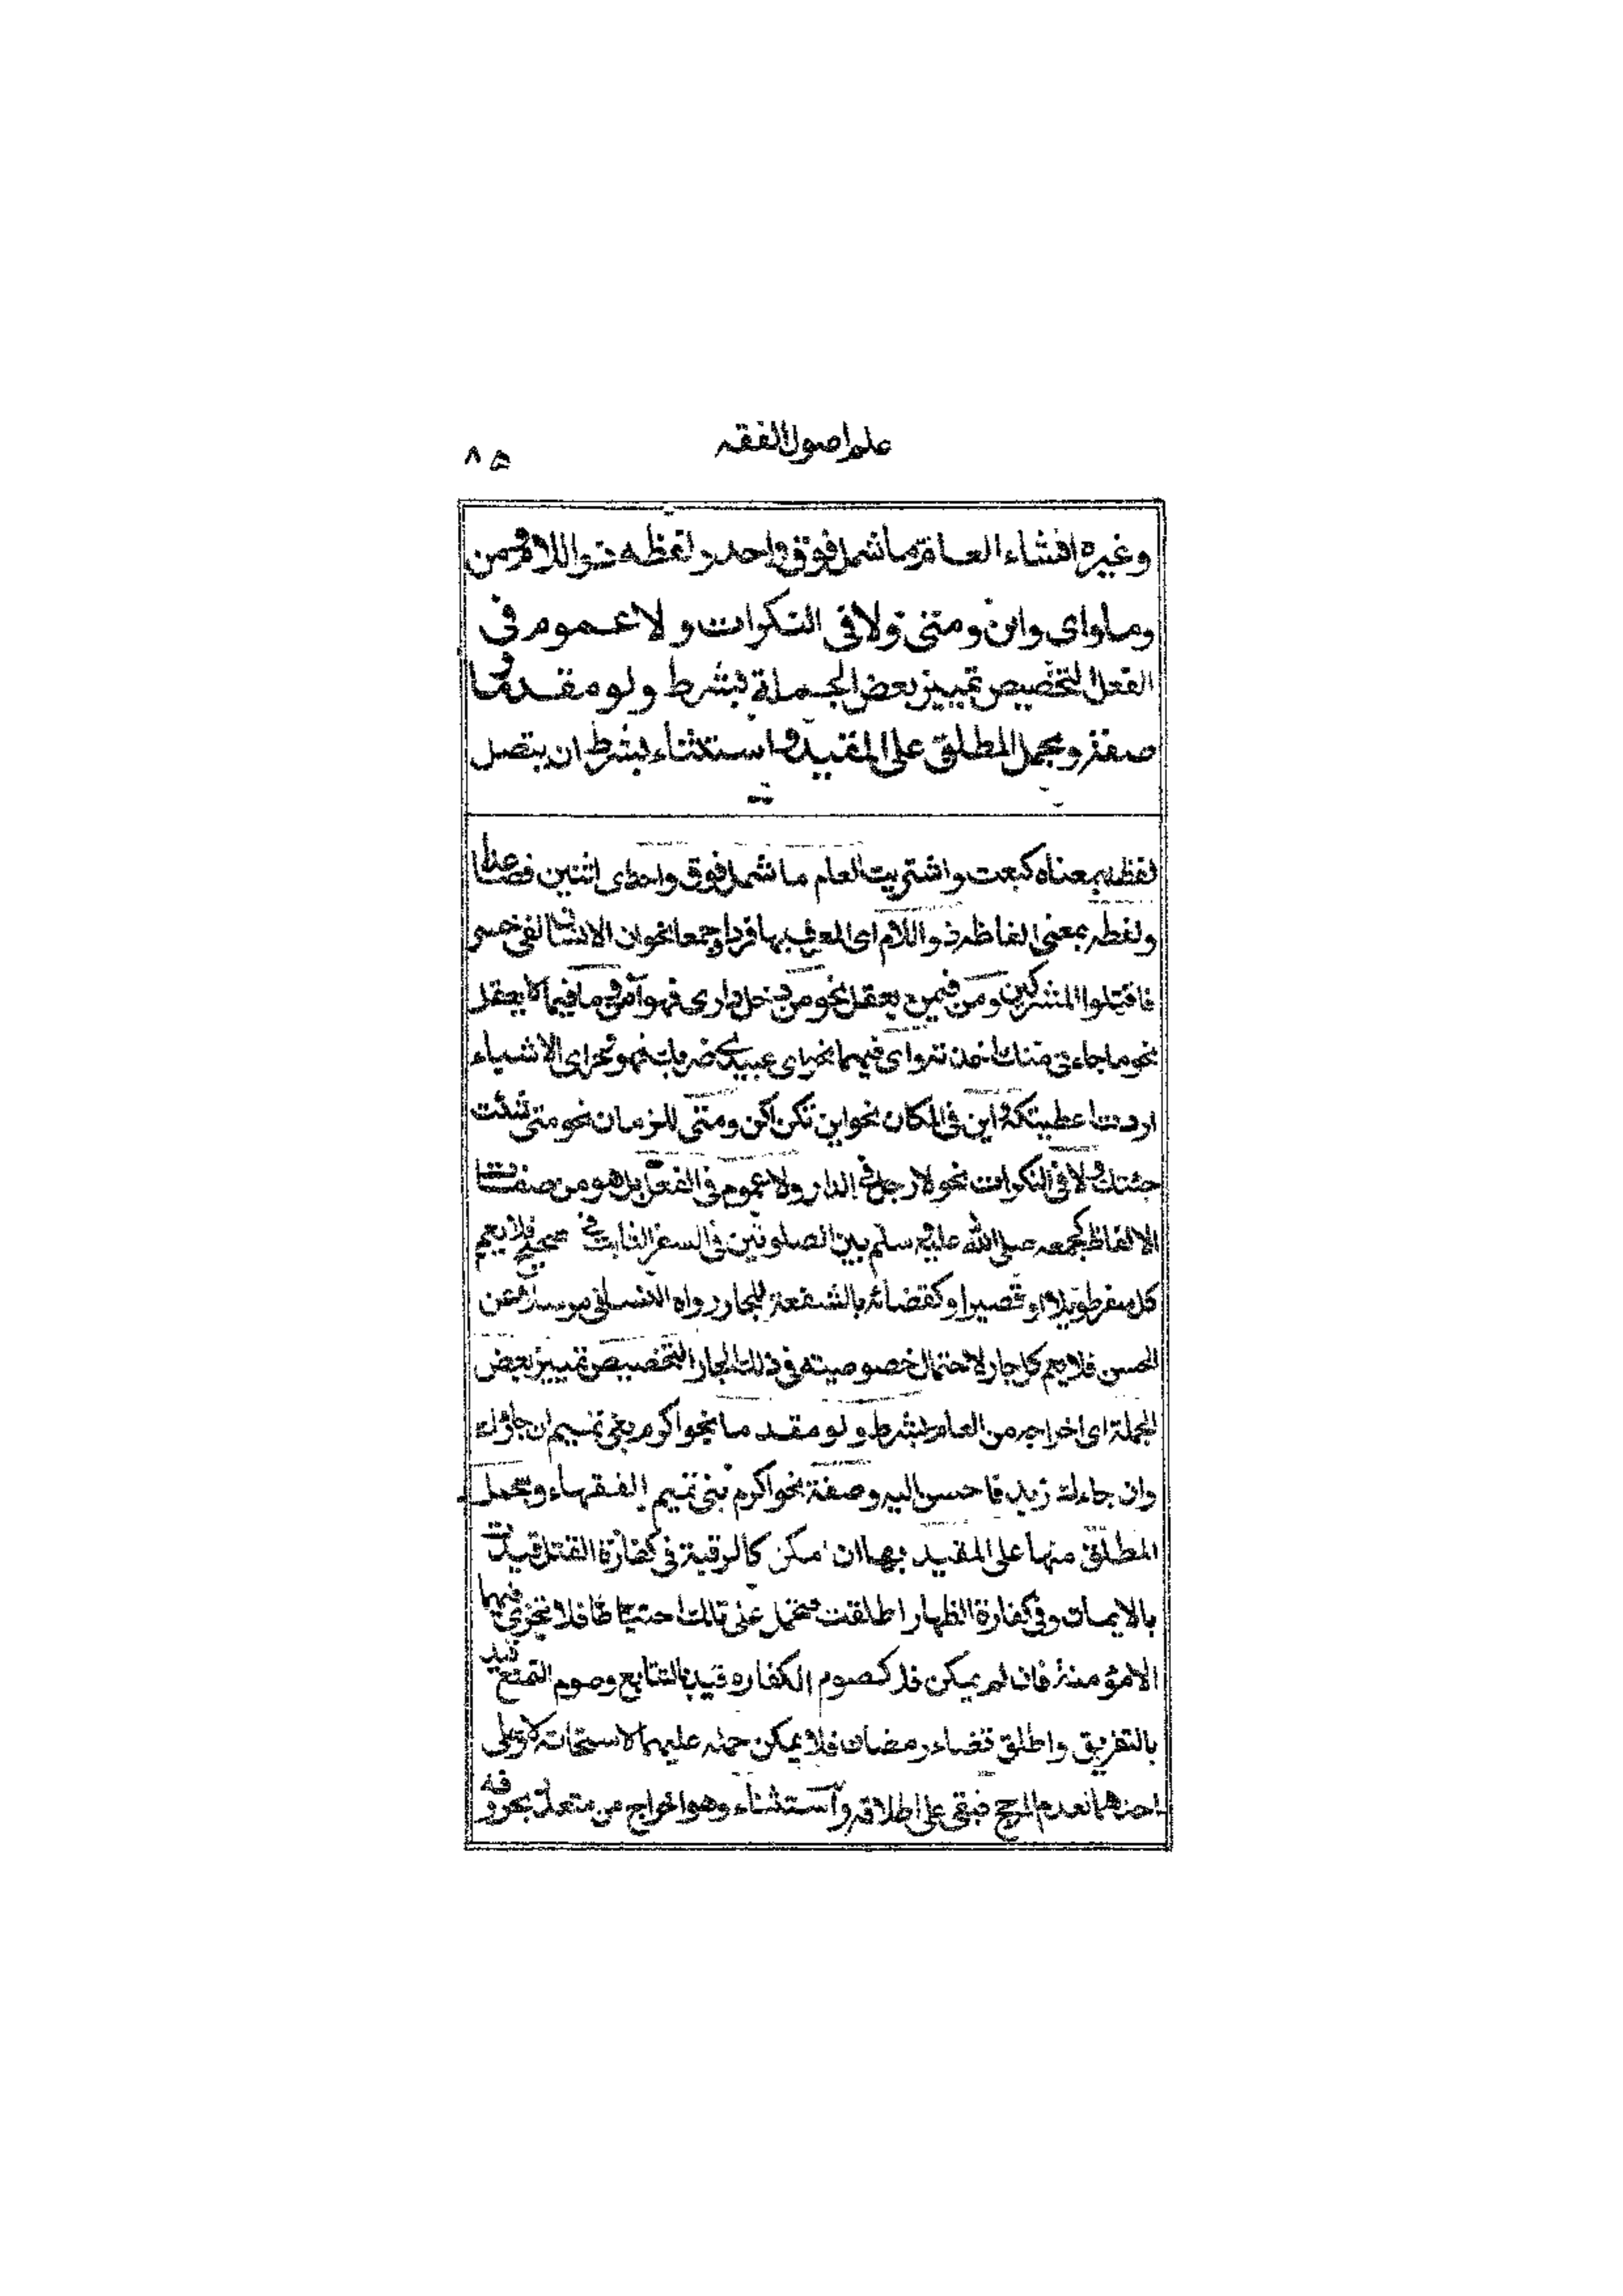 علم اصول الفقه
٨٥
وغيره افشاء العام ما شمل فوق واحد ولفظه ذو اللام ومن
وما واى واين ومتى ولا فى النكرات ولا عموم فى
الفعل التخصيص تمييز بعض الجملة بشرط ولو مقدما و
صفة ويحمل المطلق على المقيد واستثناء بشرط ان يتصل
لفظه بمعناه كبعت واشتريت العام ما شمل فوق واحد اى اثنين فصاعدا
ولفظه بمعنى الفاظه ذو اللام اى المعرف بها فردا وجمعا نحو ان الانسان لفى خسر
فاقتلوا المشركين ومن فيمن يعقل نحو من دخل دارى فهو آمن وما فيما لا يعقل
نحو ما جاءنى منك اخذته واى فيهما نحو اى عبيدى ضربك فهو حر اى الاشياء
اردت اعطيتكه اين فى المكان نحو اين تكن اكن ومتى للزمان نحو متى شئت
جئتك ولا فى النكرات نحو لا رجل فى الدار ولا عموم فى الفعل بل هو من صفات
الالفاظ كجمعه صلى الله عليه وسلم بين الصلوتين فى السفر الثابت فى صحيح فلا يعم
كل سفر طويلا او قصيرا وكقضائه بالشفعة للجار رواه النسائى مرسلا عن
الحسن فلا يعم كل جار لاحتمال خصوصيته فى ذلك الجار التخصيص تمييز بعض
الجملة اى اخراجه من العام بشرط ولو مقدما نحو اكرم بنى تميم ان جاؤك
وان جاءك زيد فاحسن اليه وصفة نحو اكرم بنى تميم الفقهاء ويحمل
المطلق منها على المقيد بها ان امكن كالرقبة فى كفارة القتل قيدت
بالايمان وفى كفارة الظهار اطلقت فتحمل على تلك احتياطا فلا تجزى فيها
الا مؤمنة فان لم يمكن فلا كصوم الكفاره قيد بالتتابع وصوم التمتع قيد
بالتفريق واطلق قضاء رمضان فلا يمكن حمله عليهما لاستحالته ولا على
احدهما لعدم المرجح فبقى على اطلاقه واستثناء وهو اخراج من متعدد بحروفه